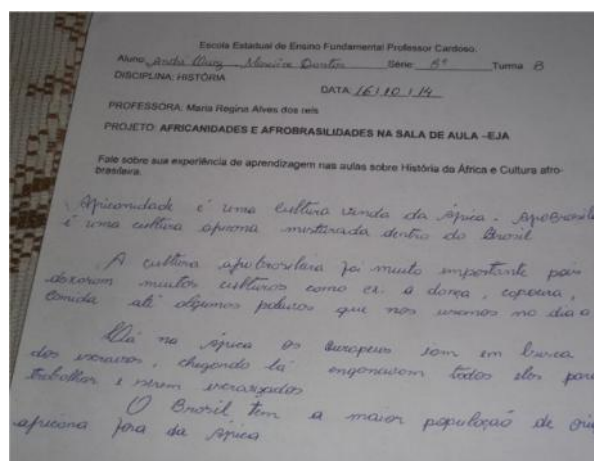 Escola Estadual de Ensino Fundamental Professor Cardoso.
Aluno: André Moreira Dantas Série: 8ª Turma B
DISCIPLINA: HISTÓRIA
DATA 16/10/14
PROFESSORA: Maria Regina Alves dos reis
PROJETO: AFRICANIDADES E AFROBRASILIDADES NA SALA DE AULA –EJA
Fale sobre sua experiência de aprendizagem nas aulas sobre História da África e Cultura afro-
brasileira.
Africanidade é uma cultura vinda da África. Afrobrasili
é uma cultura africana misturada dentro do Brasil
A cultura afrobrasileira foi muito importante pois
deixaram muitas culturas como ex. a dança, capoeira,
comida até algumas palavras que nos usamos no dia a
Lá na África os Europeus iam em busca
dos escravos, chegando lá enganavam todos eles para
trabalhar e serem escravizados
O Brasil tem a maior população de ori
africana fora da África